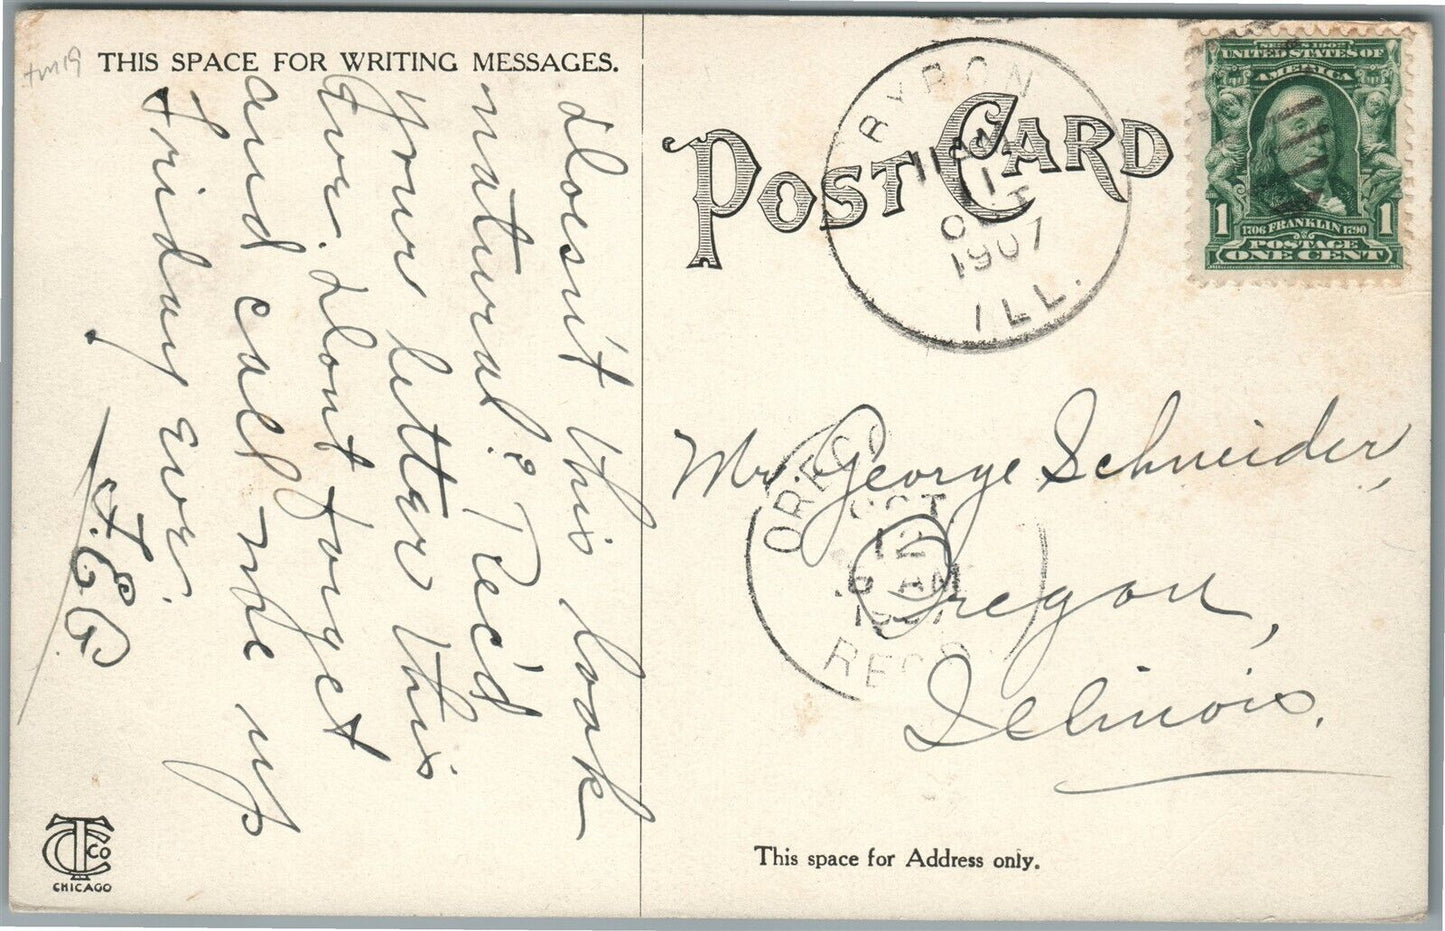 THIS SPACE FOR WRITING MESSAGES.
doesn't this look
natural? Rec'd
your letter this
Eve. dont forget
and call me up
Friday Eve.
F.E.G.
CHICAGO
POST CARD
BYRON
11 AM
11
OCT
1907
ILL.
SERIES 1902
UNITED STATES OF
AMERICA
1706 FRANKLIN 1790
POSTAGE
1 ONE CENT 1
OREGO
OCT
12
AM
REC'D
Mr. George Schneider,
Oregon,
Illinois.
This space for Address only.